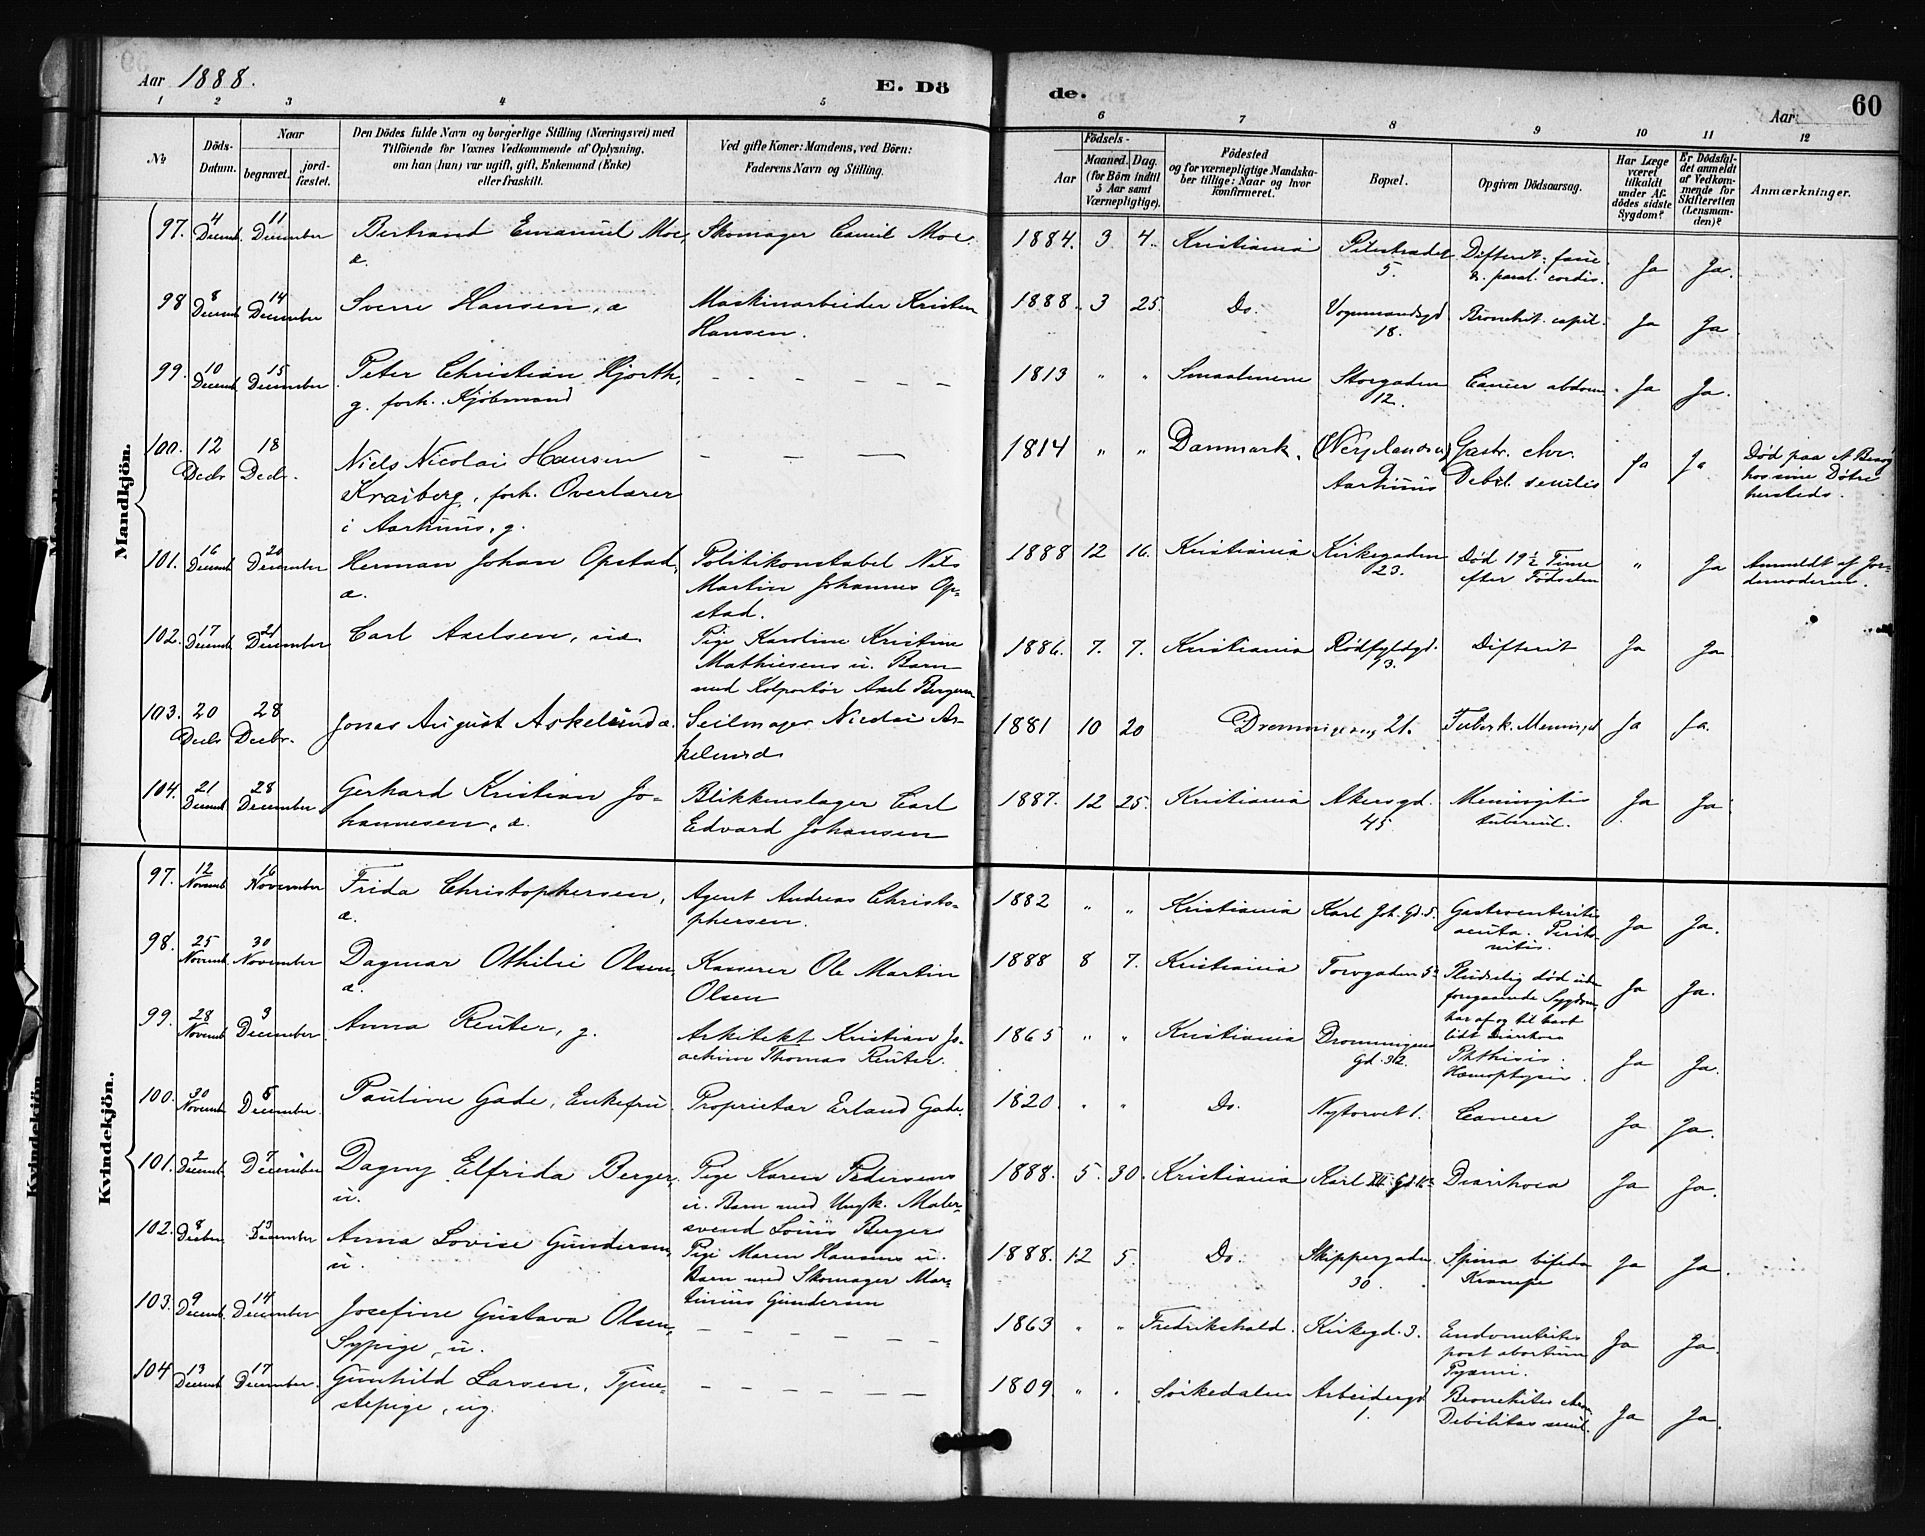 Aar 1888.
E. Dö
de.
Aar
60
1 2 3 4 5
6 7 8 9 10 11 12
No
Döds-
Datum.
Naar
begravet.
jord-
fæstet.
Den Dödes fulde Navn og borgerlige Stilling (Næringsvei) med
Tilföiende for Voxnes Vedkommende af Oplysning,
om han (hun) var ugift, gift, Enkemand (Enke)
eller fraskilt.
Ved gifte Koner: Mandens, ved Börn:
Faderens Navn og Stilling.
Födsels-
Aar
Maaned. Dag.
(for Börn indtil
5 Aar samt
Værnepligtige).
Födested
og for værnepligtige Mandska-
ber tillige: Naar og hvor
konfirmeret.
Bopæl.
Opgiven Dödsaarsag.
Har Læge
været
tilkaldt
under Af-
dödes sidste
Sygdom?
Er Dödsfal-
det anmeldt
af Vedkom-
mende for
Skifteretten
(Lensman-
den)?
Anmærkninger.
Mandkjön.
97. 4 Decemb. 11 December Bertrand Emanuel Moe, Skomager Camil Moe. 1884. 3 4. Kristiania Pilestrædet Difterit. fauc.
æ. 5. & paral. cordis. Ja Ja.
98 8 Decemb 14 December Sverre Hansen, æ Maskinarbeider Kristen 1888. 3 25. Do. Vognmandsgd Bronchit. capil. Ja Ja
Hansen. 18.
99. 10 Decemb 15 December Peter Christian Hjorth, 1813 " " Smaalenene Storgaden Cancer abdom. Ja Ja.
g. forh. Kjöbmand 12.
100. 12 Decbr 18 Decbr. Niels Nicolai Hansen 1814 " " Danmark. Gastr. chr. Ja Ja Död paa et Besög
Krarberg, forh. Overlærer Aarhuus Debil. senilis hos sine Döttre
i Aarhuus, g. hersteds.
101. 16 Decemb 20 December Herman Johan Opstad, Politikonstabel Nils 1888 12 16. Kristiania Kirkegaden Död 19½ Time " Ja Anmeldt af Jor-
æ. Martin Johannes Op- 23. efter Födselen demoderen.
stad.
102. 17 Decemb 21 December Carl Axelsen, uæ Pige Karoline Kristine 1886. 7. 7. Kristiania Rödfyldgd. Difterit Ja Ja
Mathiesens u. Barn 93.
med Kolportör Axel Bergersen
103. 20 Decbr 28 Decbr. Jonas August Askelund æ. Seilmager Nicolai As- 1881 10 20 Dronningensg 21. Tuberk. Meningit Ja Ja.
kelund
104. 21 Decemb 28 December Gerhard Kristian Jo- Blikkenslager Carl 1887. 12 25. Kristiania Akersgd. Meningitis Ja Ja
hannesen, æ. Edvard Johansen 45 tubercul.
Kvindekjön.
97. 12 Novemb 16 November Frida Christophersen, Agent Andreas Christo- 1882 " " Kristiania Karl Joh. Gd. 5. Gastroenteritis Ja Ja.
æ. phersen. acuta. Perito-
nitis.
98. 25 Novemb 30 November Dagmar Othilie Olsen, Kasserer Ole Martin 1888 8 7. Kristiania Torvgaden 5a Pludselig död uden Ja Ja.
æ. Olsen foregaaende Sygdom,
har af og til havt
lidt Diarrhoea
99. 28 Novemb 3 December Anna Reuter, g. Arkitekt Kristian Jo- 1865 " " Kristiania Dronningens Phthisis. Ja Ja.
achim Thomas Reuter. Gd. 32. Hæmoptysis.
100. 30 Novemb 5 December. Pauline Gade, Enkefru. Proprietær Erland Gade. 1820. " " Do. Nytorvet 1. Cancer Ja Ja.
101. 2 Decemb. 7 December Dagny Elfrida Berger, Pige Karen Pedersens 1888. 5. 30. Kristiania Karl XII Gd Diarrhoea Ja Ja.
u. u. Barn med Ungk. Maler-
svend Louis Berger
102. 8 Decbr 13 December Anna Lovise Gundersen, Pige Maren Hansens u. 1888. 12 5. Do. Skippergaden Spina bifida Ja Ja.
u. Barn med Skomager Mar- 30 Krampe
tinius Gundersen
103. 9 Decemb. 14 December Josefine Gustava Olsen, 1863 " " Fredrikshald. Kirkegd. 3. Endometritis Ja Ja.
Sypige, u. post abortum
Pyæmi.
104 13 Decemb 17 December. Gunhild Larsen, Tjene- 1809. " " Sörkedalen Arbeidergd Bronchitis chron Ja Ja.
stepige, ug. 1. Debilitas senil.